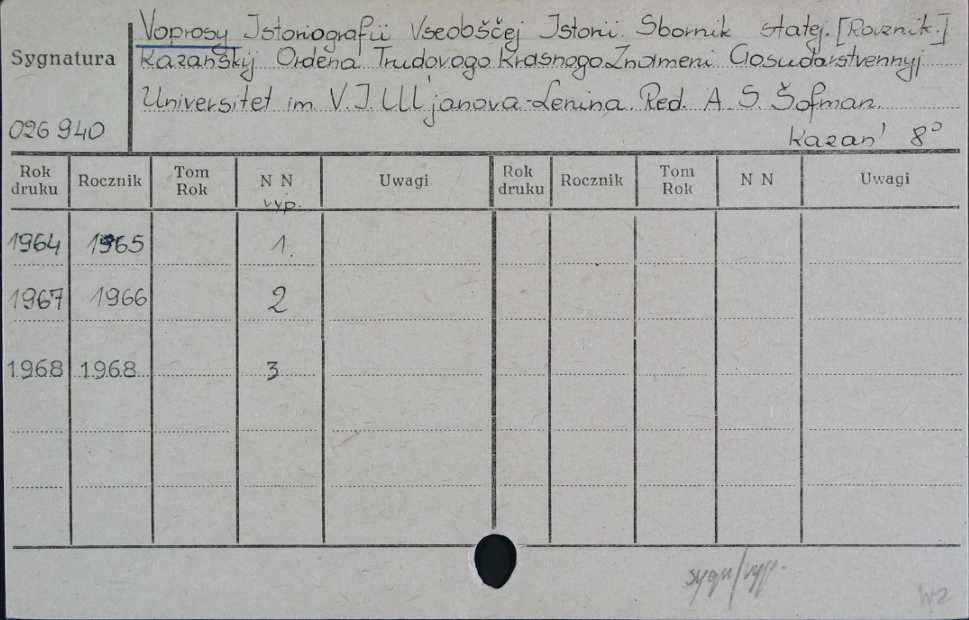 Voprosy Istoriografii Vseobščej Istorii. Sbornik statej. [Rocznik.]
Sygnatura
Kazanśkij Ordena Trudovogo Krasnogo Znameni Gosudarstvennyj
Universitet im. V. I. Ul'janova-Lenina. Red. A. S. Šofman.
026 940
Kazań 8°
Rok druku Rocznik Tom Rok N N Uwagi Rok druku Rocznik Tom Rok N N Uwagi
vyp.
1964 1965 1.
1967 1966 2
1968 1968 3
sygn/vyp.